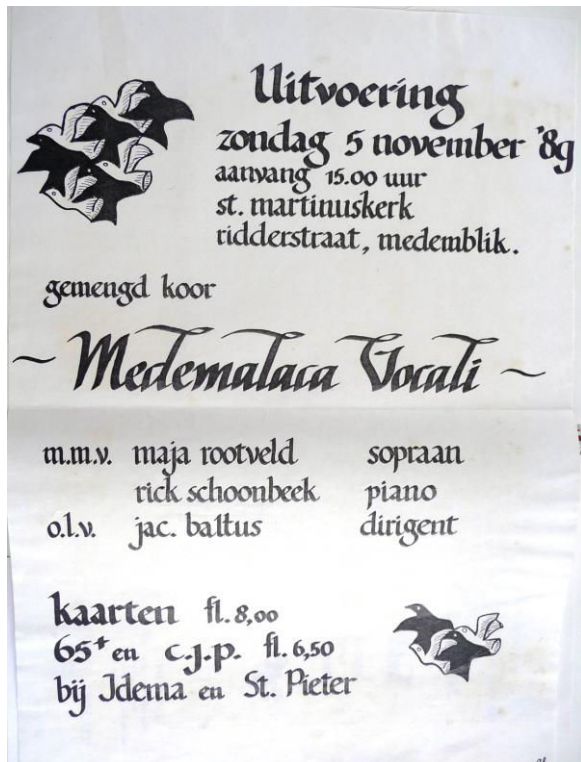 Uitvoering
zondag 5 november '89
aanvang 15.00 uur
st. martinuskerk
ridderstraat, medemblik.
gemengd koor
~ Medemalaca Vocali ~
m.m.v. maja rootveld sopraan
rick schoonbeek piano
o.l.v. jac. baltus dirigent
kaarten fl. 8,00
65+ en c.j.p. fl. 6,50
bij Idema en St. Pieter